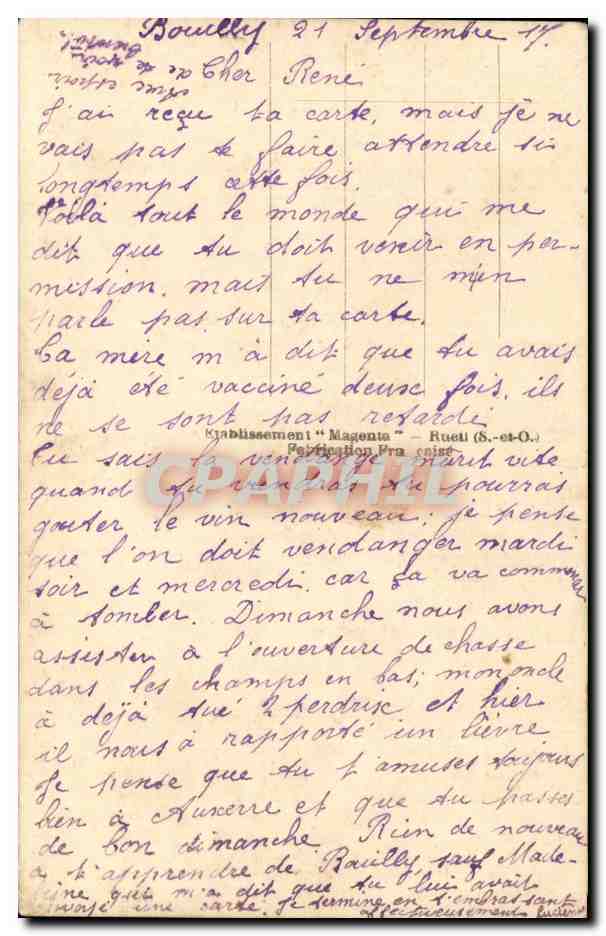 Bouilly 21 Septembre 17.
Cher René
J'ai reçu ta carte, mais je ne
vais pas te faire attendre si
longtemps cette fois.
Voilà tout le monde qui me
dit que tu doit venir en per-
mission, mais tu ne m'en
parle pas sur ta carte.
Ta mère m'à dit que tu avais
déjà été vacciné deux fois, ils
ne se sont pas retardé
Etablissement "Magenta" - Rueil (S.-et-O.)
Fabrication Française
Tu sais la vendange murit vite
quand tu viendras tu pourras
gouter le vin nouveau; je pense
que l'on doit vendanger mardi
soir et mercredi. car ça va commencer
à tomber. Dimanche nous avons
assister à l'ouverture de chasse
dans les champs en bas; mon oncle
à déjà tué 2 perdrix et hier
il nous à rapporté un lièvre
Je pense que tu t'amuses toujours
bien à Auxerre et que tu passes
de bon dimanche. Rien de nouveau
à t'apprendre de Bouilly, sauf Made-
leine qui m'a dit que tu lui avait
envoyé une carte. Je termine en t'embrassant
affectueusement Lucienne
de te
voir
bientôt
CPAPHIL